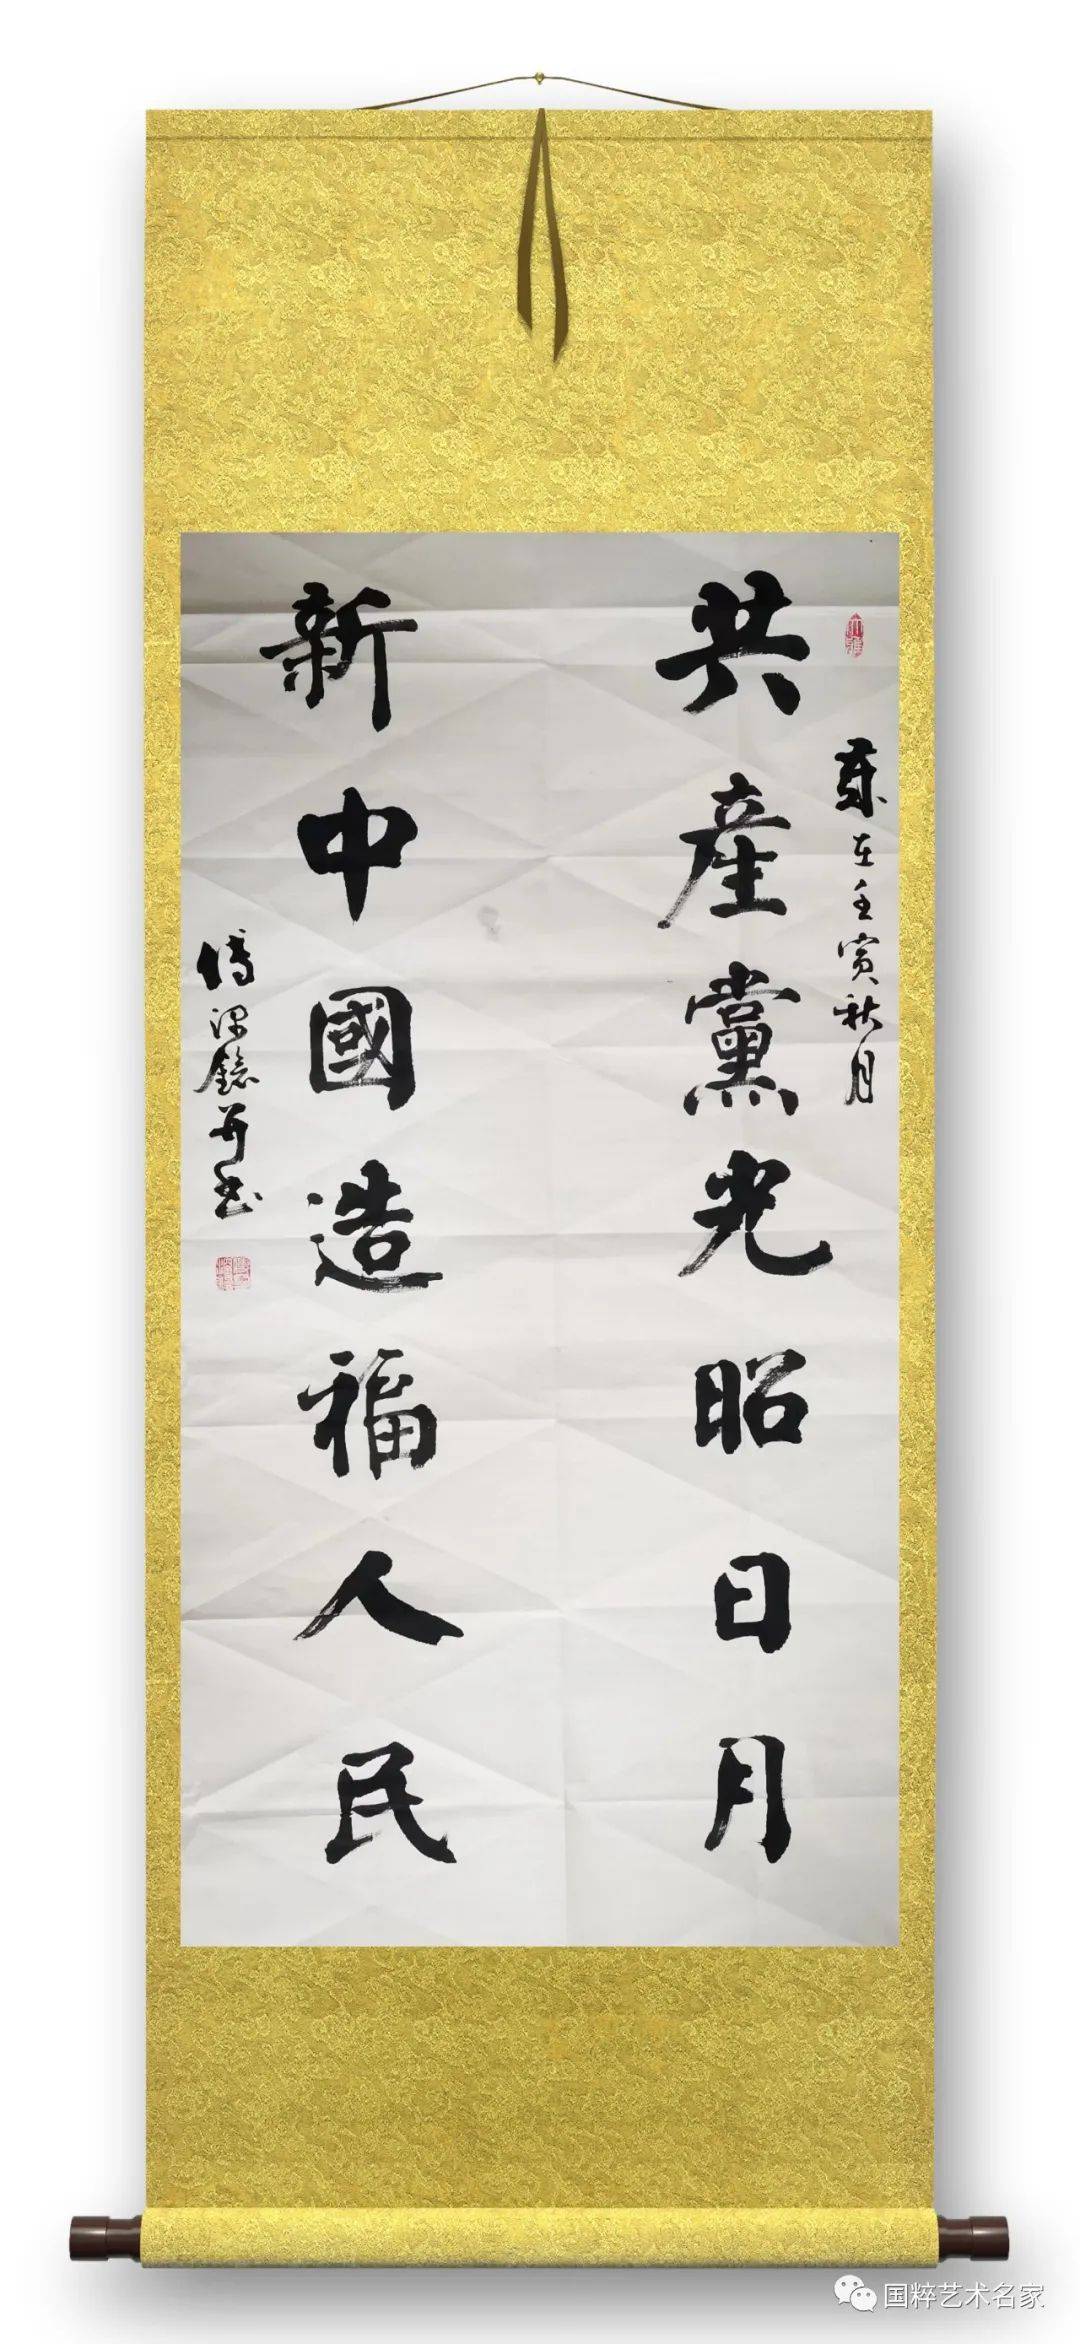 共產黨光昭日月
歲在壬寅秋月
新中國造福人民
傅深鐿并书
国粹艺术名家